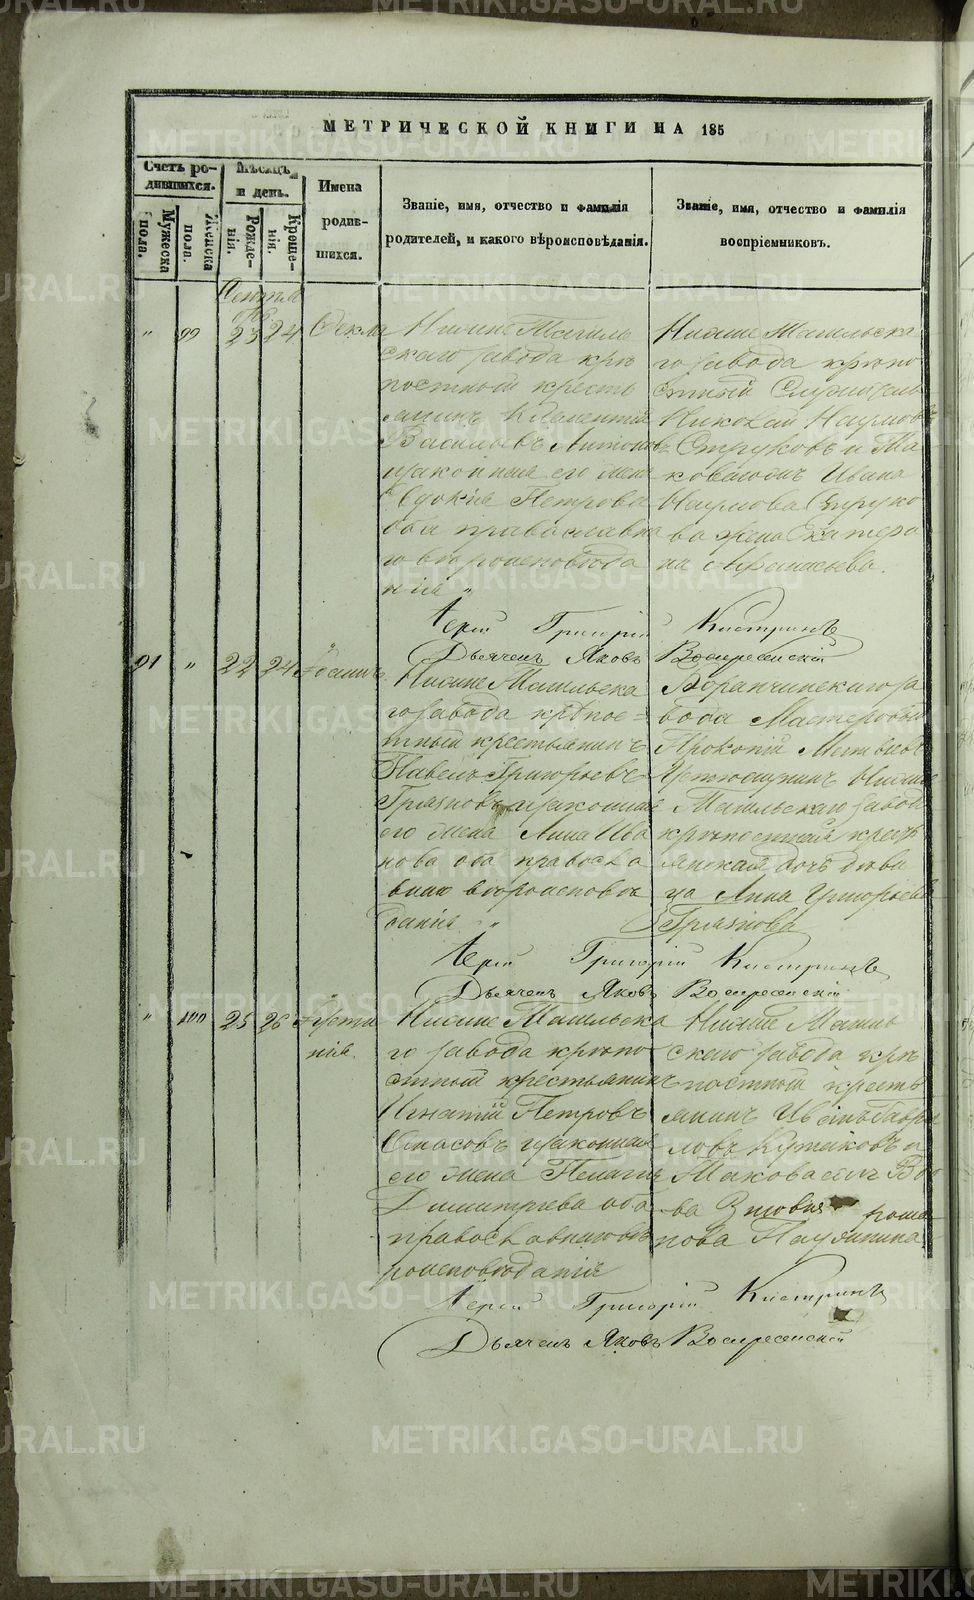 METRIKI.GASO-URAL.RU
МЕТРИЧЕСКОЙ КНИГИ НА 185
Счетъ родившихся.
Мѣсяцъ и день.
Имена родившихся.
Званіе, имя, отчество и фамилія родителей, и какого вѣроисповѣданія.
Званіе, имя, отчество и фамилія воспріемниковъ.
Мужеска пола.
Женска пола.
Рожденія.
Крещенія.
„ 99 23 24
Нижне Тагиль
скаго завода крѣ
постный кресть
янинъ Климентій
Васильевъ
законная его жена
Евдокія Петрова
оба православна
го вѣроисповѣда
нія „
Нижне Тагильска
го завода крѣпо
стный Служитель
Николай Наумовъ
Струковъ и Та
коваго жъ Ивана
Наумова Струко
ва жена Екатери
на Афанасьева.
Іерей Григорій Кистринъ
Дьячекъ Яковъ Воскресенскій
91 „ 22 24
Нижне Тагильска
го завода крѣпос=
тный крестьянинъ
Павелъ Григорьевъ
Грязновъ, законная
его жена Анна Ива
нова оба правосла
внаго вѣроисповѣ
данія „
Баранчинскаго за
вода Мастеровый
Прокопій Матвѣевъ
Нижне
Тагильскаго завода
крѣпостная крест
янская дочь дѣви
ца Анна Григорьева
Грязнова
Іерей Григорій Кистринъ
Дьячекъ Яковъ Воскресенскій
„ 100 25 26 Устинія.
Нижне Тагильска
го завода крѣпо
стный крестьянинъ
Игнатій Петровъ
законная
его жена Пелагія
Димитріева оба
православнаго вѣ
роисповѣданія
Нижне Тагиль
скаго завода крѣ
постный кресть
янинъ
Іерей Григорій Кистринъ
Дьячекъ Яковъ Воскресенскій